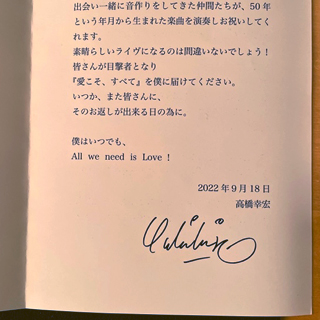 出会い一緒に音作りをしてきた仲間たちが、50年
という年月から生まれた楽曲を演奏しお祝いしてく
れます。
素晴らしいライヴになるのは間違いないでしょう！
皆さんが目撃者となり
『愛こそ、すべて』を僕に届けてください。
いつか、また皆さんに、
そのお返しが出来る日の為に。
僕はいつでも、
All we need is Love！
2022年9月18日
高橋幸宏